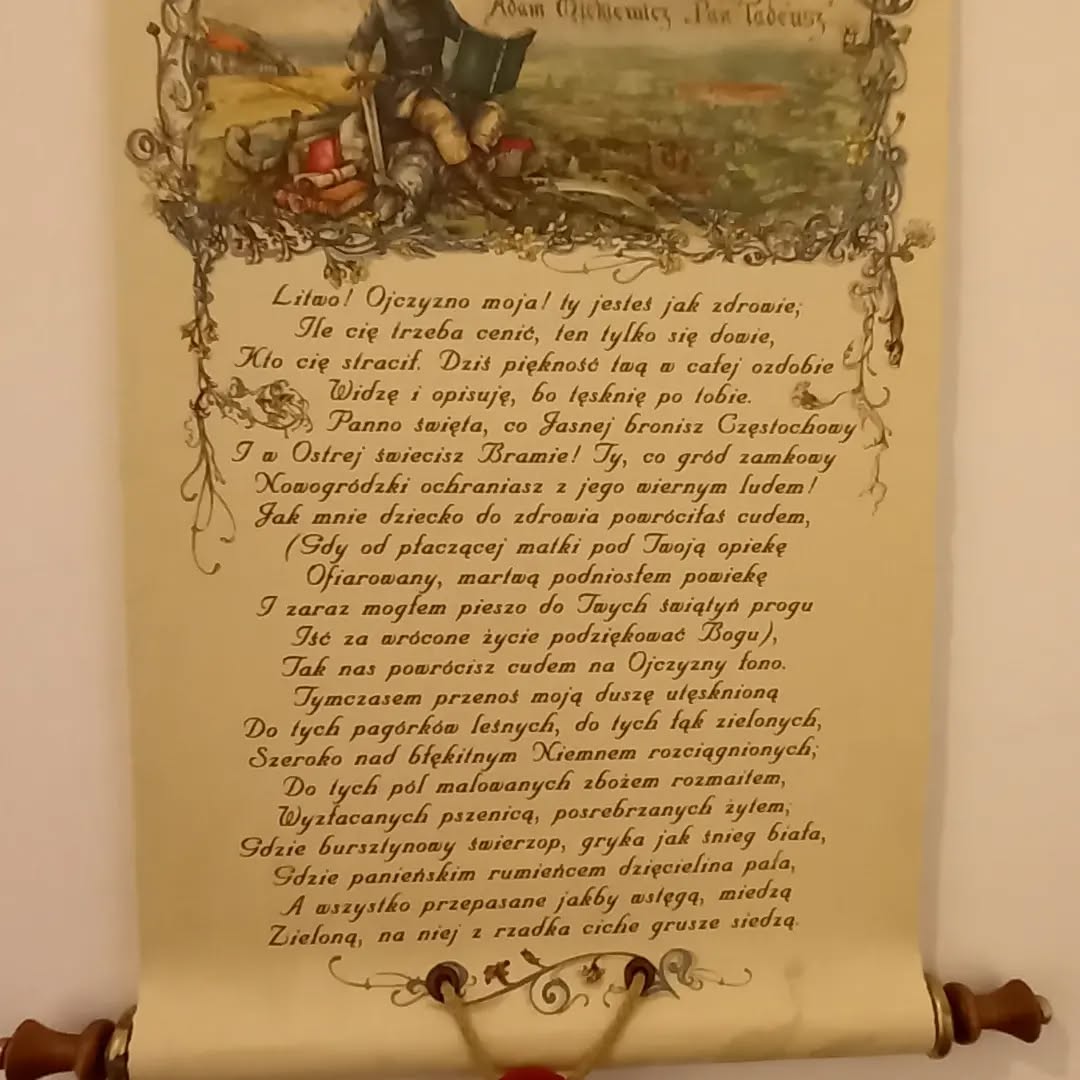 Adam Mickiewicz „Pan Tadeusz”
Litwo! Ojczyzno moja! ty jesteś jak zdrowie;
Ile cię trzeba cenić, ten tylko się dowie,
Kto cię stracił. Dziś piękność twą w całej ozdobie
Widzę i opisuję, bo tęsknię po tobie.
Panno święta, co Jasnej bronisz Częstochowy
I w Ostrej świecisz Bramie! Ty, co gród zamkowy
Nowogródzki ochraniasz z jego wiernym ludem!
Jak mnie dziecko do zdrowia powróciłaś cudem,
(Gdy od płaczącej matki pod Twoją opiekę
Ofiarowany, martwą podniosłem powiekę
I zaraz mogłem pieszo do Twych świątyń progu
Iść za wrócone życie podziękować Bogu),
Tak nas powrócisz cudem na Ojczyzny łono.
Tymczasem przenoś moją duszę utęsknioną
Do tych pagórków leśnych, do tych łąk zielonych,
Szeroko nad błękitnym Niemnem rozciągnionych;
Do tych pól malowanych zbożem rozmaitem,
Wyzłacanych pszenicą, posrebrzanych żytem;
Gdzie bursztynowy świerzop, gryka jak śnieg biała,
Gdzie panieńskim rumieńcem dzięcielina pała,
A wszystko przepasane jakby wstęgą, miedzą
Zieloną, na niej z rzadka ciche grusze siedzą.